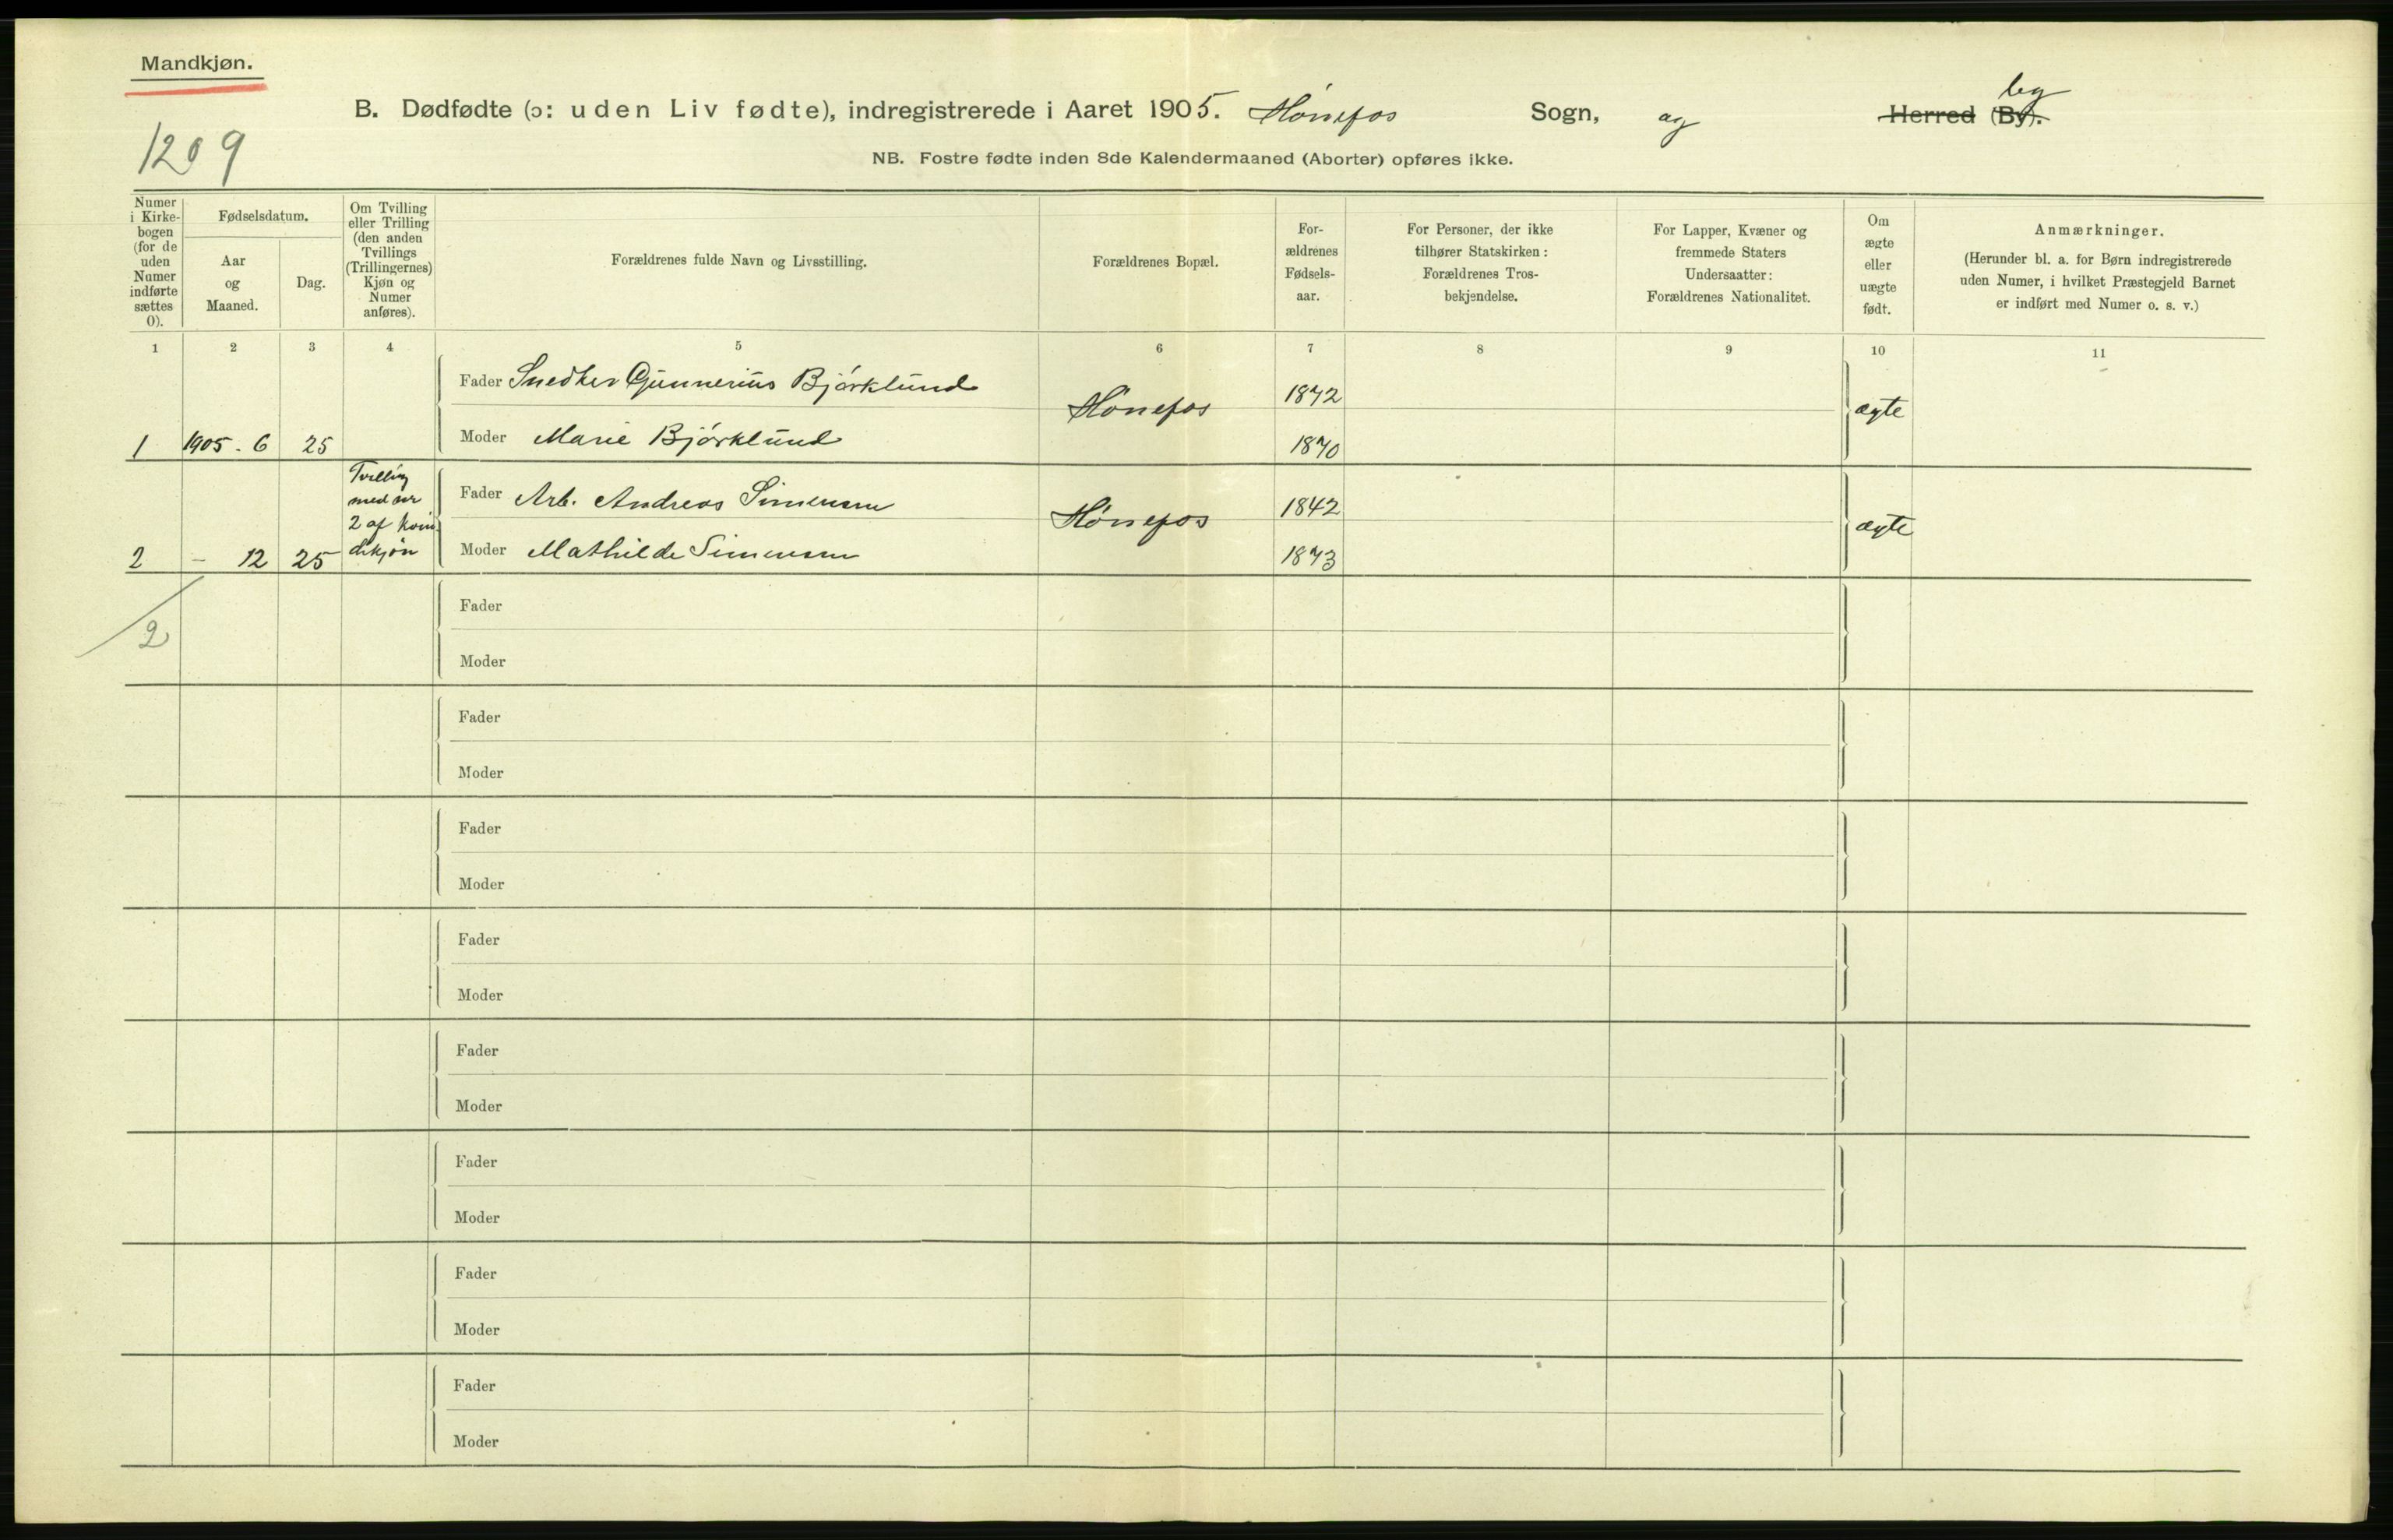 Mandkjøn.
B. Dødfødte (ɔ: uden Liv fødte), indregistrerede i Aaret 1905. Hønefos Sogn, og Herred (By). by
1209
NB. Fostre fødte inden 8de Kalendermaaned (Aborter) opføres ikke.
Numer
i Kirke-
bogen
(for de
uden
Numer
indførte
sættes
0).
Fødselsdatum.
Aar
og
Maaned.
Dag.
Om Tvilling
eller Trilling
(den anden
Tvillings
(Trillingernes)
Kjøn og
Numer
anføres).
Forældrenes fulde Navn og Livsstilling.
Forældrenes Bopæl.
For-
ældrenes
Fødsels-
aar.
For Personer, der ikke
tilhører Statskirken:
Forældrenes Tros-
bekjendelse.
For Lapper, Kvæner og
fremmede Staters
Undersaatter:
Forældrenes Nationalitet.
Om
ægte
eller
uægte
født.
Anmærkninger.
(Herunder bl. a. for Børn indregistrerede
uden Numer, i hvilket Præstegjeld Barnet
er indført med Numer o. s. v.)
1 2 3 4 5 6 7 8 9 10 11
Fader Snedker Gunnerius Bjørklund Hønefos 1872 ægte
1 1905 - 6 25 Moder Marie Bjørklund 1870
Tvilling
med nr
2 af kvin
dekjøn
Fader Arb. Andreas Simensen Hønefos 1842 ægte
2 - 12 25 Moder Mathilde Simensen 1873
2
Fader
Moder
Fader
Moder
Fader
Moder
Fader
Moder
Fader
Moder
Fader
Moder
Fader
Moder
Fader
Moder